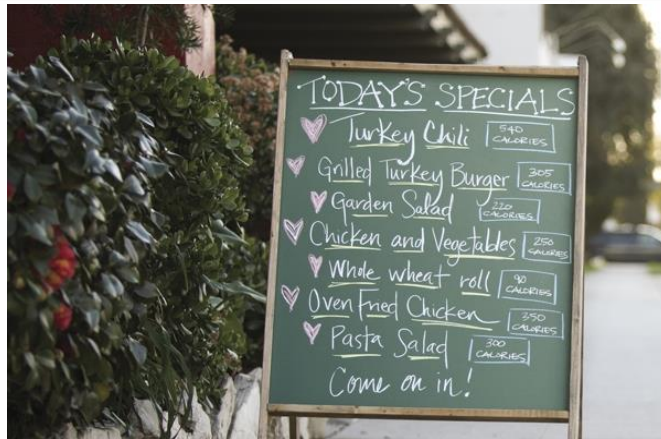 TODAY'S SPECIALS
Turkey Chili 540 CALORIES
Grilled Turkey Burger 305 CALORIES
Garden Salad 220 CALORIES
Chicken and Vegetables 250 CALORIES
Whole wheat roll 90 CALORIES
Oven Fried Chicken 350 CALORIES
Pasta Salad 300 CALORIES
Come on in!